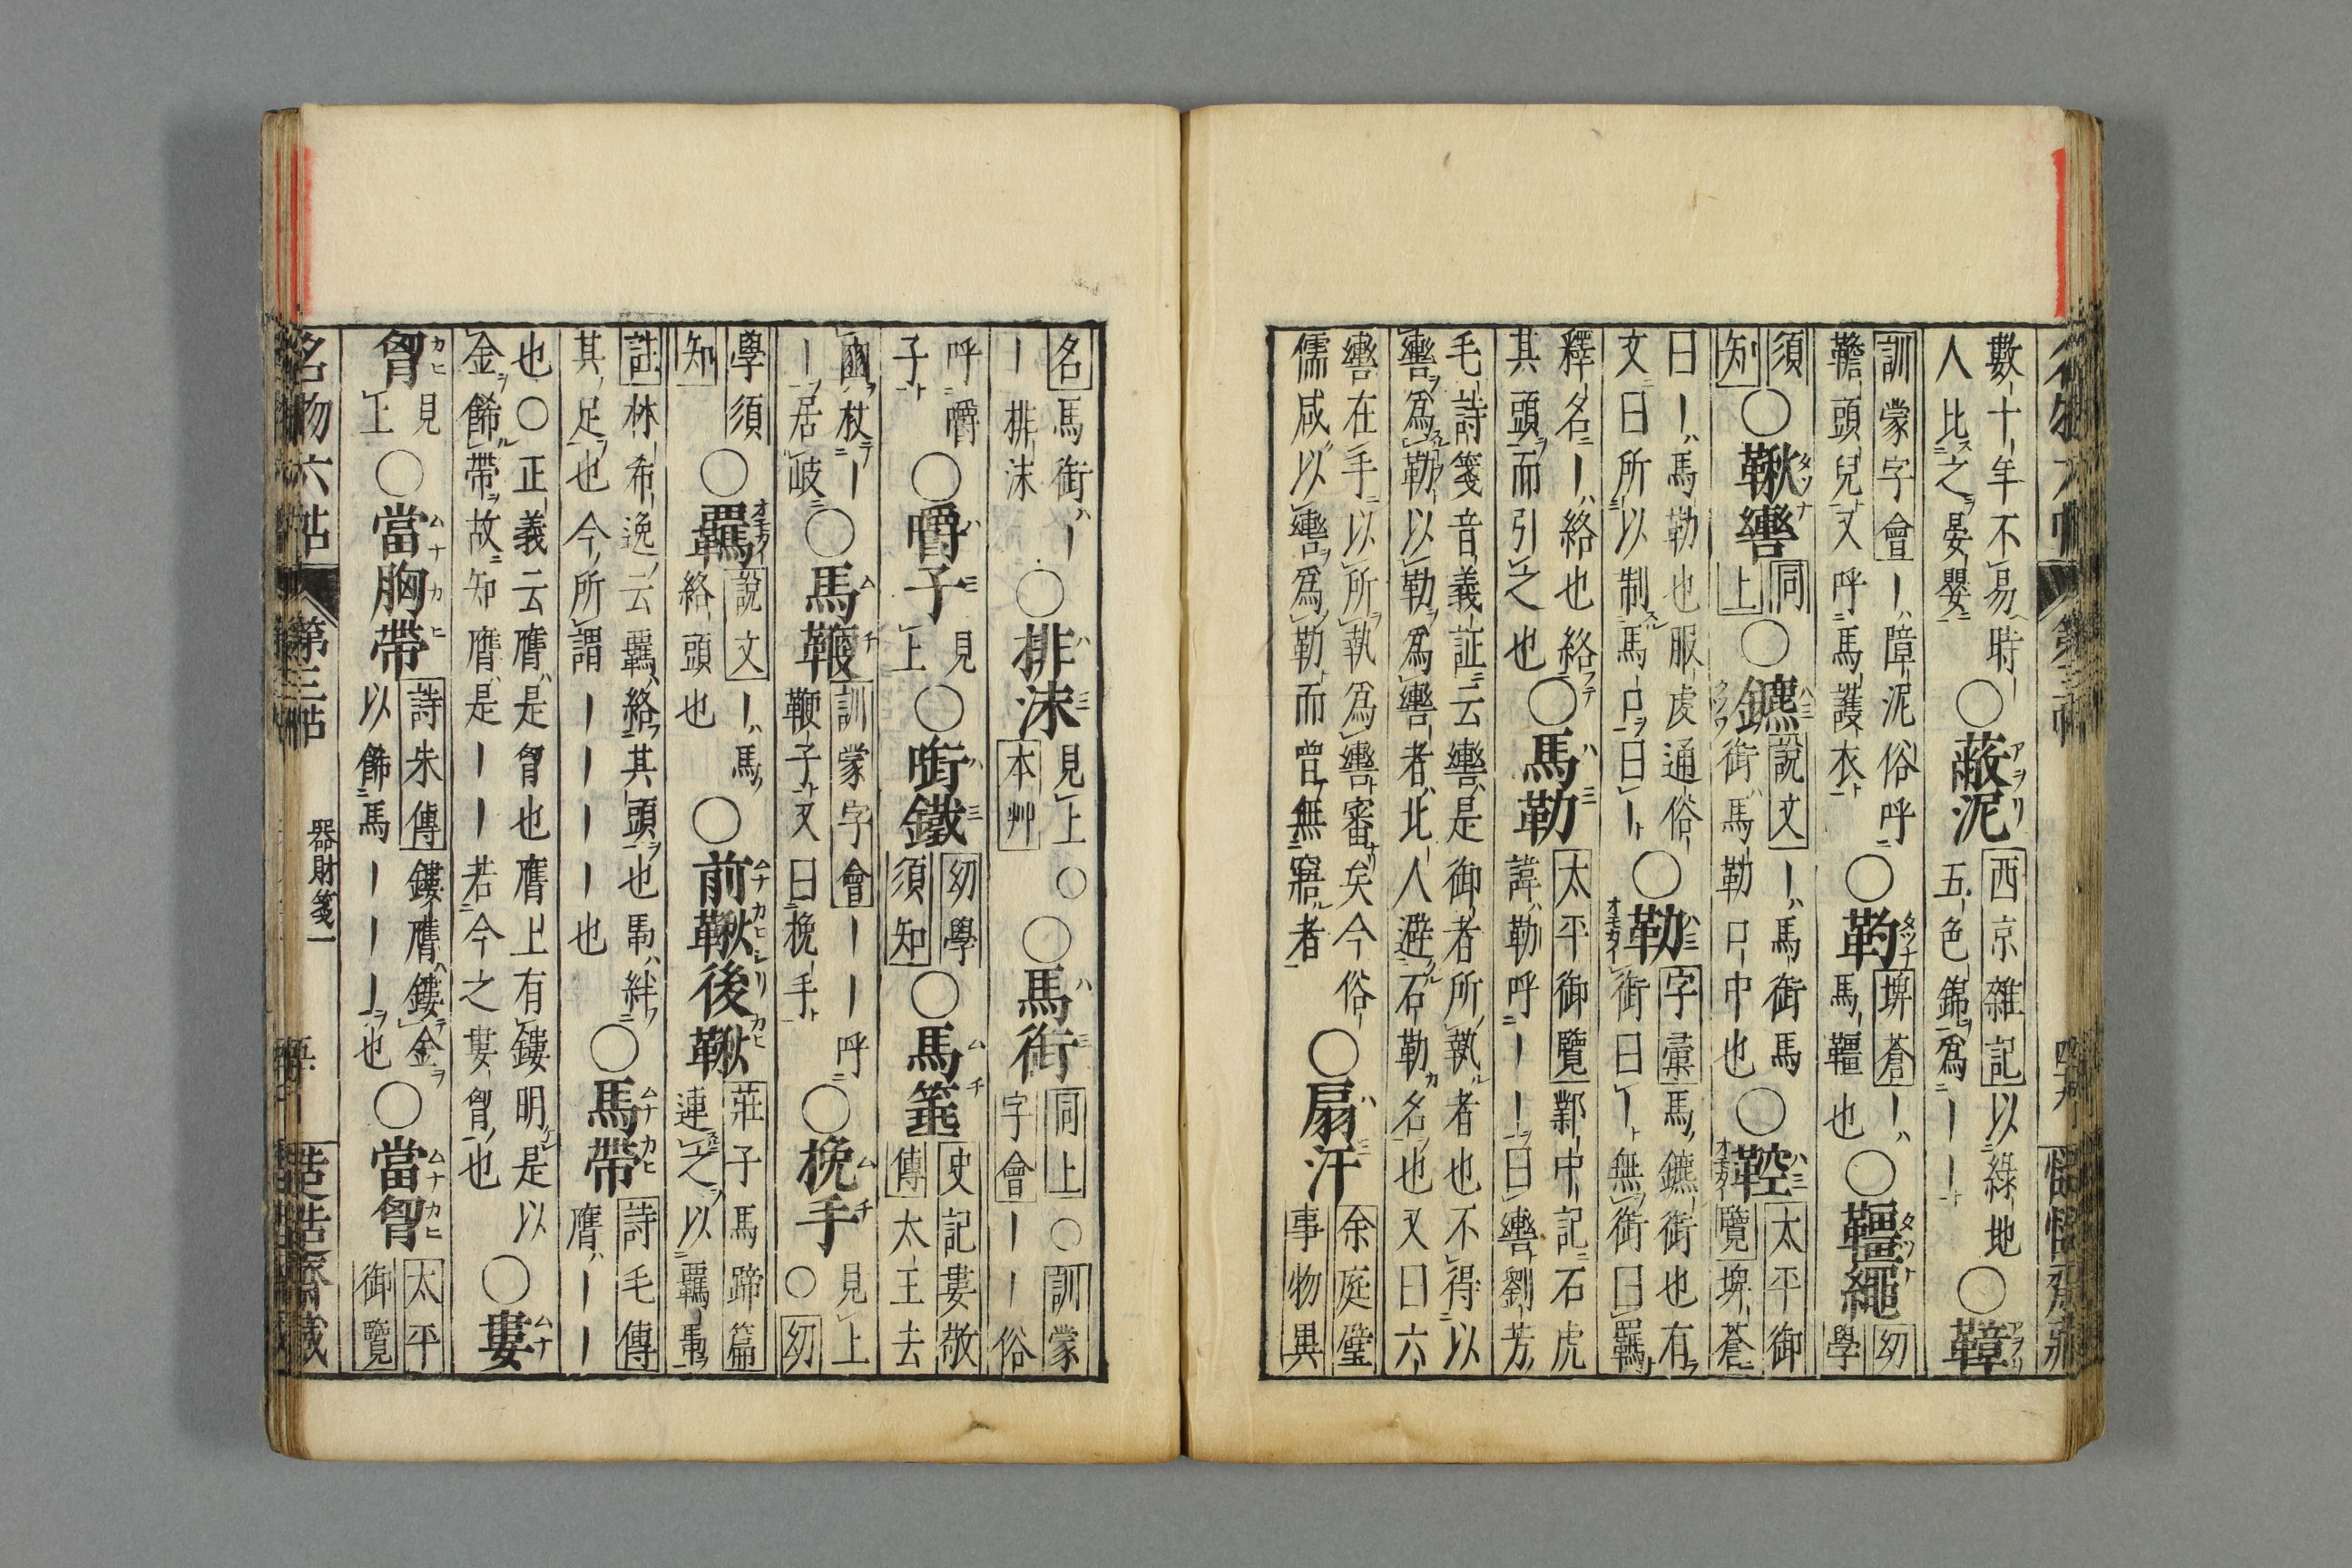 數十年不易時｜○蔽泥西京雜記以綠地
人比之晏嬰五色錦爲｜｜○鞾
訓蒙字會｜障泥俗呼○靮埤蒼｜
韂頭兒又呼馬護衣馬韁也○韁繩幼學
須知○鞦轡同上○鑣說文｜馬銜馬
銜馬勒口中也○鞚太平御覽埤蒼
曰｜馬勒也服虔通俗
文曰所以制馬口曰｜○勒字彙馬鑣銜也有
銜曰｜無銜曰羈
釋名｜絡也絡
其頭而引之也○馬勒太平御覽鄴中記石虎
諱勒呼｜｜曰轡劉芳
毛詩箋音義証云轡是御者所執者也不得以
轡爲勒以勒爲轡者北人避石勒名也又曰六
轡在手以所執爲轡審矣今俗
儒咸以轡爲勒而曾無寤者○扇汗余庭璧
事物異
名馬銜｜
｜排沫○排沫見上本艸○○馬銜同上○訓蒙
字會｜｜俗
呼嚼
子○嚼子見上○啣鐵幼學
須知○馬箠史記婁敬
傳太王去
豳杖｜
｜居岐○馬鞭訓蒙字會｜｜呼
鞭子又曰挽手○挽手見上○幼
學須
知○羈說文｜馬
絡頭也○前鞦後鞦莊子馬蹄篇
連之以羈馽
註林希逸云羈絡其頭也馽絆
其足也今所謂｜｜｜｜｜也○馬帶詩毛傳
膺｜｜
也○正義云膺是胷也膺上有鏤明是以
金飾帶故知膺是｜｜若今之婁胷也○婁
胷見上○當胸帶詩朱傳鏤膺鏤金
以飾馬｜｜｜也○當胷太平
御覽
名物六帖
第三帖
器財箋一